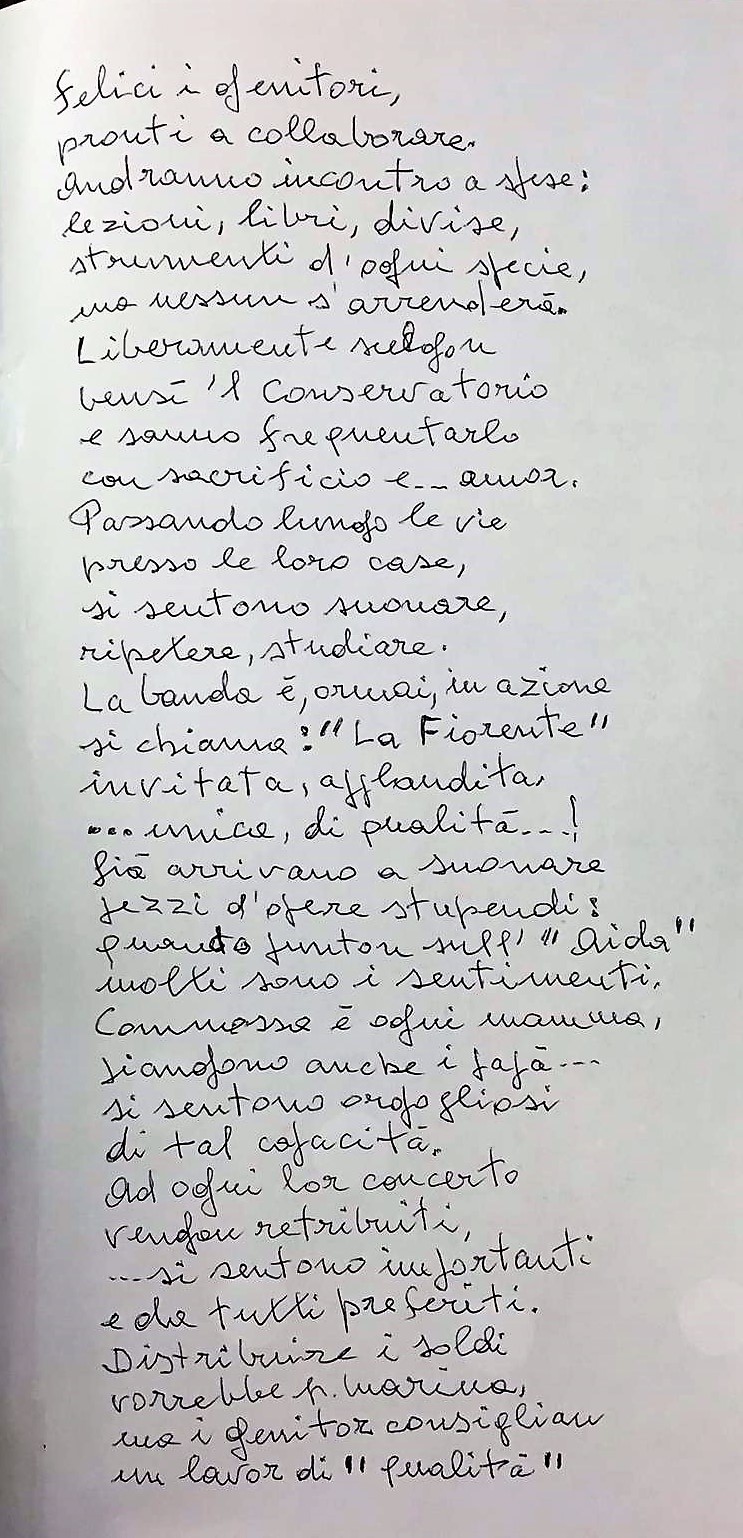 Felici i genitori,
pronti a collaborare.
Andranno incontro a spese:
lezioni, libri, divise,
strumenti d'ogni specie,
ma nessun s'arrenderà.
Liberamente scelgon
bensì 'l Conservatorio
e sanno frequentarlo
con sacrificio e... amor.
Passando lungo le vie
presso le loro case,
si sentono suonare,
ripetere, studiare.
La banda è, ormai, in azione
si chiama: "La Fiorente"
invitata, applaudita,
... unica, di qualità...!
Già arrivano a suonare
pezzi d'opere stupendi:
quando puntan sull' "Aida"
molti sono i sentimenti.
Commossa è ogni mamma,
piangono anche i papà...
si sentono orgogliosi
di tal capacità.
Ad ogni lor concerto
vengon retribuiti,
...si sentono importanti
e da tutti preferiti.
Distribuire i soldi
vorrebbe p. Marino,
ma i genitor consiglian
un lavor di "qualità"